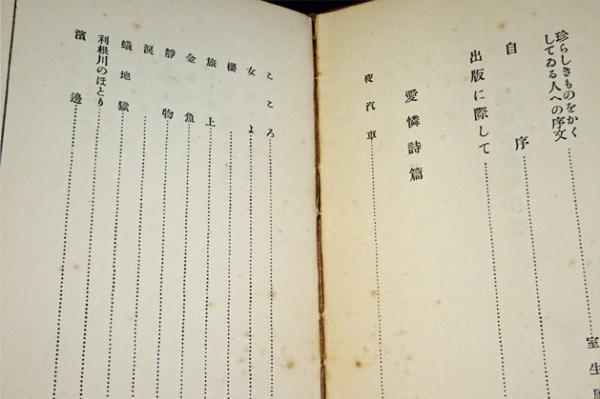 珍らしきものをかく
してゐる人への序文
室生
自序
出版に際して
愛憐詩篇
夜汽車
こころ
女よ
櫻
旅上
金魚
靜物
涙
蟻地獄
利根川のほとり
濱邊